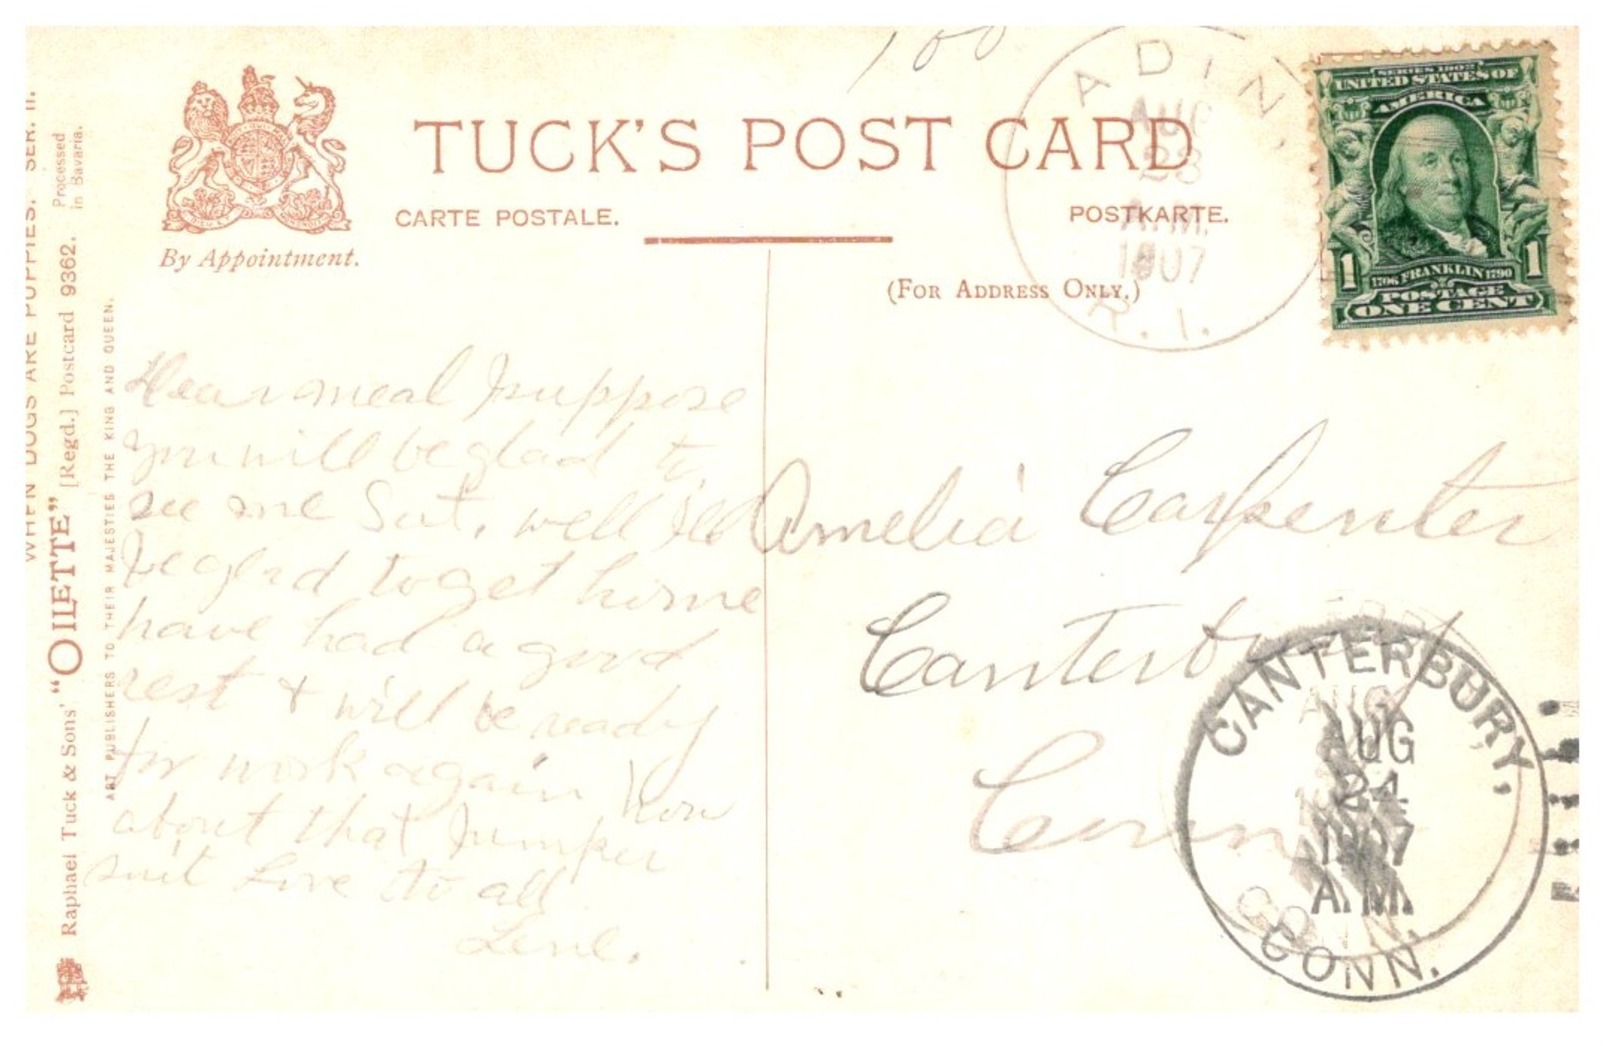 WHEN DOGS ARE PUPPIES. SER. II.
Raphael Tuck & Sons' "OILETTE" [Regd.] Postcard 9362.
Processed
in Bavaria.
ART PUBLISHERS TO THEIR MAJESTIES THE KING AND QUEEN.
By Appointment.
TUCK'S POST CARD
CARTE POSTALE.
POSTKARTE.
(FOR ADDRESS ONLY.)
100
ADIN,
AUG
23
A.M.
1907
R.I.
SERIES 1902
UNITED STATES OF
AMERICA
1 1
1706 FRANKLIN 1790
POSTAGE
ONE CENT
Dear meal I suppose
you will be glad to
see me Sat, well Ill
be glad to get home
have had a good
rest & will be ready
for work again how
about that Jumper
suit Love to all
Amelia Carpenter
Canterbury
Conn
CANTERBURY,
AUG
24
1907
A.M.
CONN.